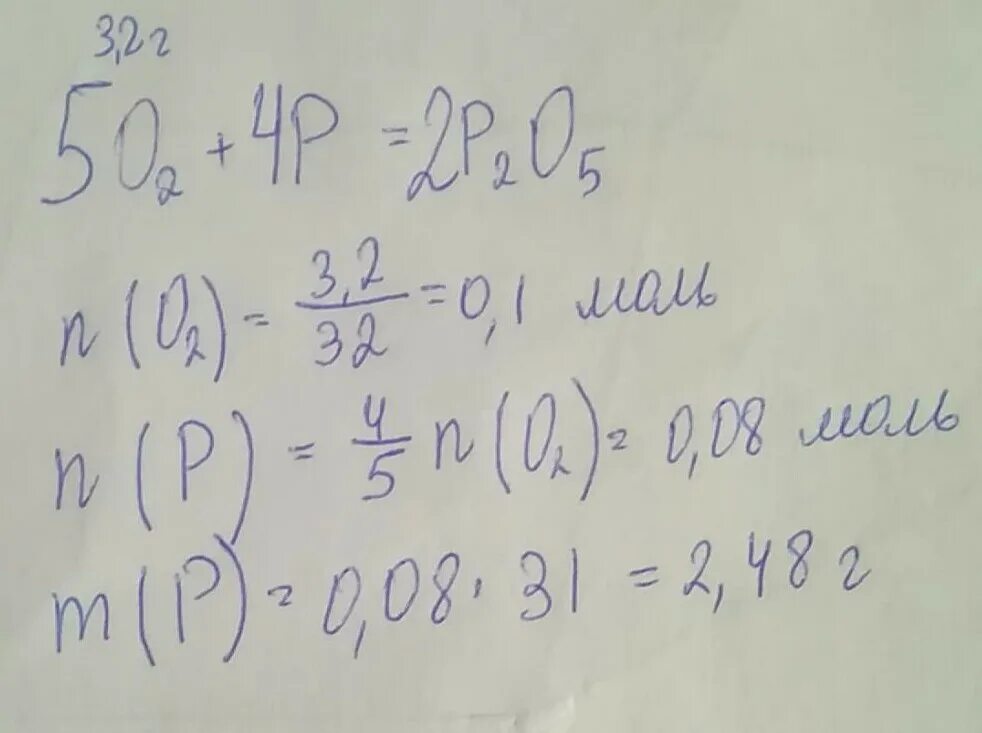 3,2 г
5O₂ + 4P = 2P₂O₅
n(O₂) = 3,2/32 = 0,1 моль
n(P) = 4/5 n(O₂) = 0,08 моль
m(P) = 0,08 · 31 = 2,48 г